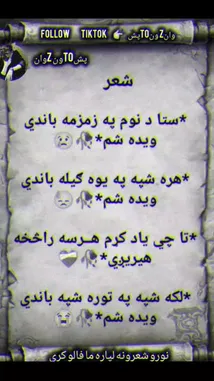 FOLLOW TIKTOK 👉 وانZونTOپش
پشTOونZوان
شعر
*ستا د نوم په زمزمه باندي
ويده شم*🥀😢
*هره شپه په يوه ګيله باندي
ويده شم*🥀😞
*تا چي ياد کرم هرسه راڅخه
هيريږي*🥀❤️‍🩹
*لکه شپه په توره شپه باندي
ويده شم*🥀😭
نورو شعرونه لپاره ما فالو کری